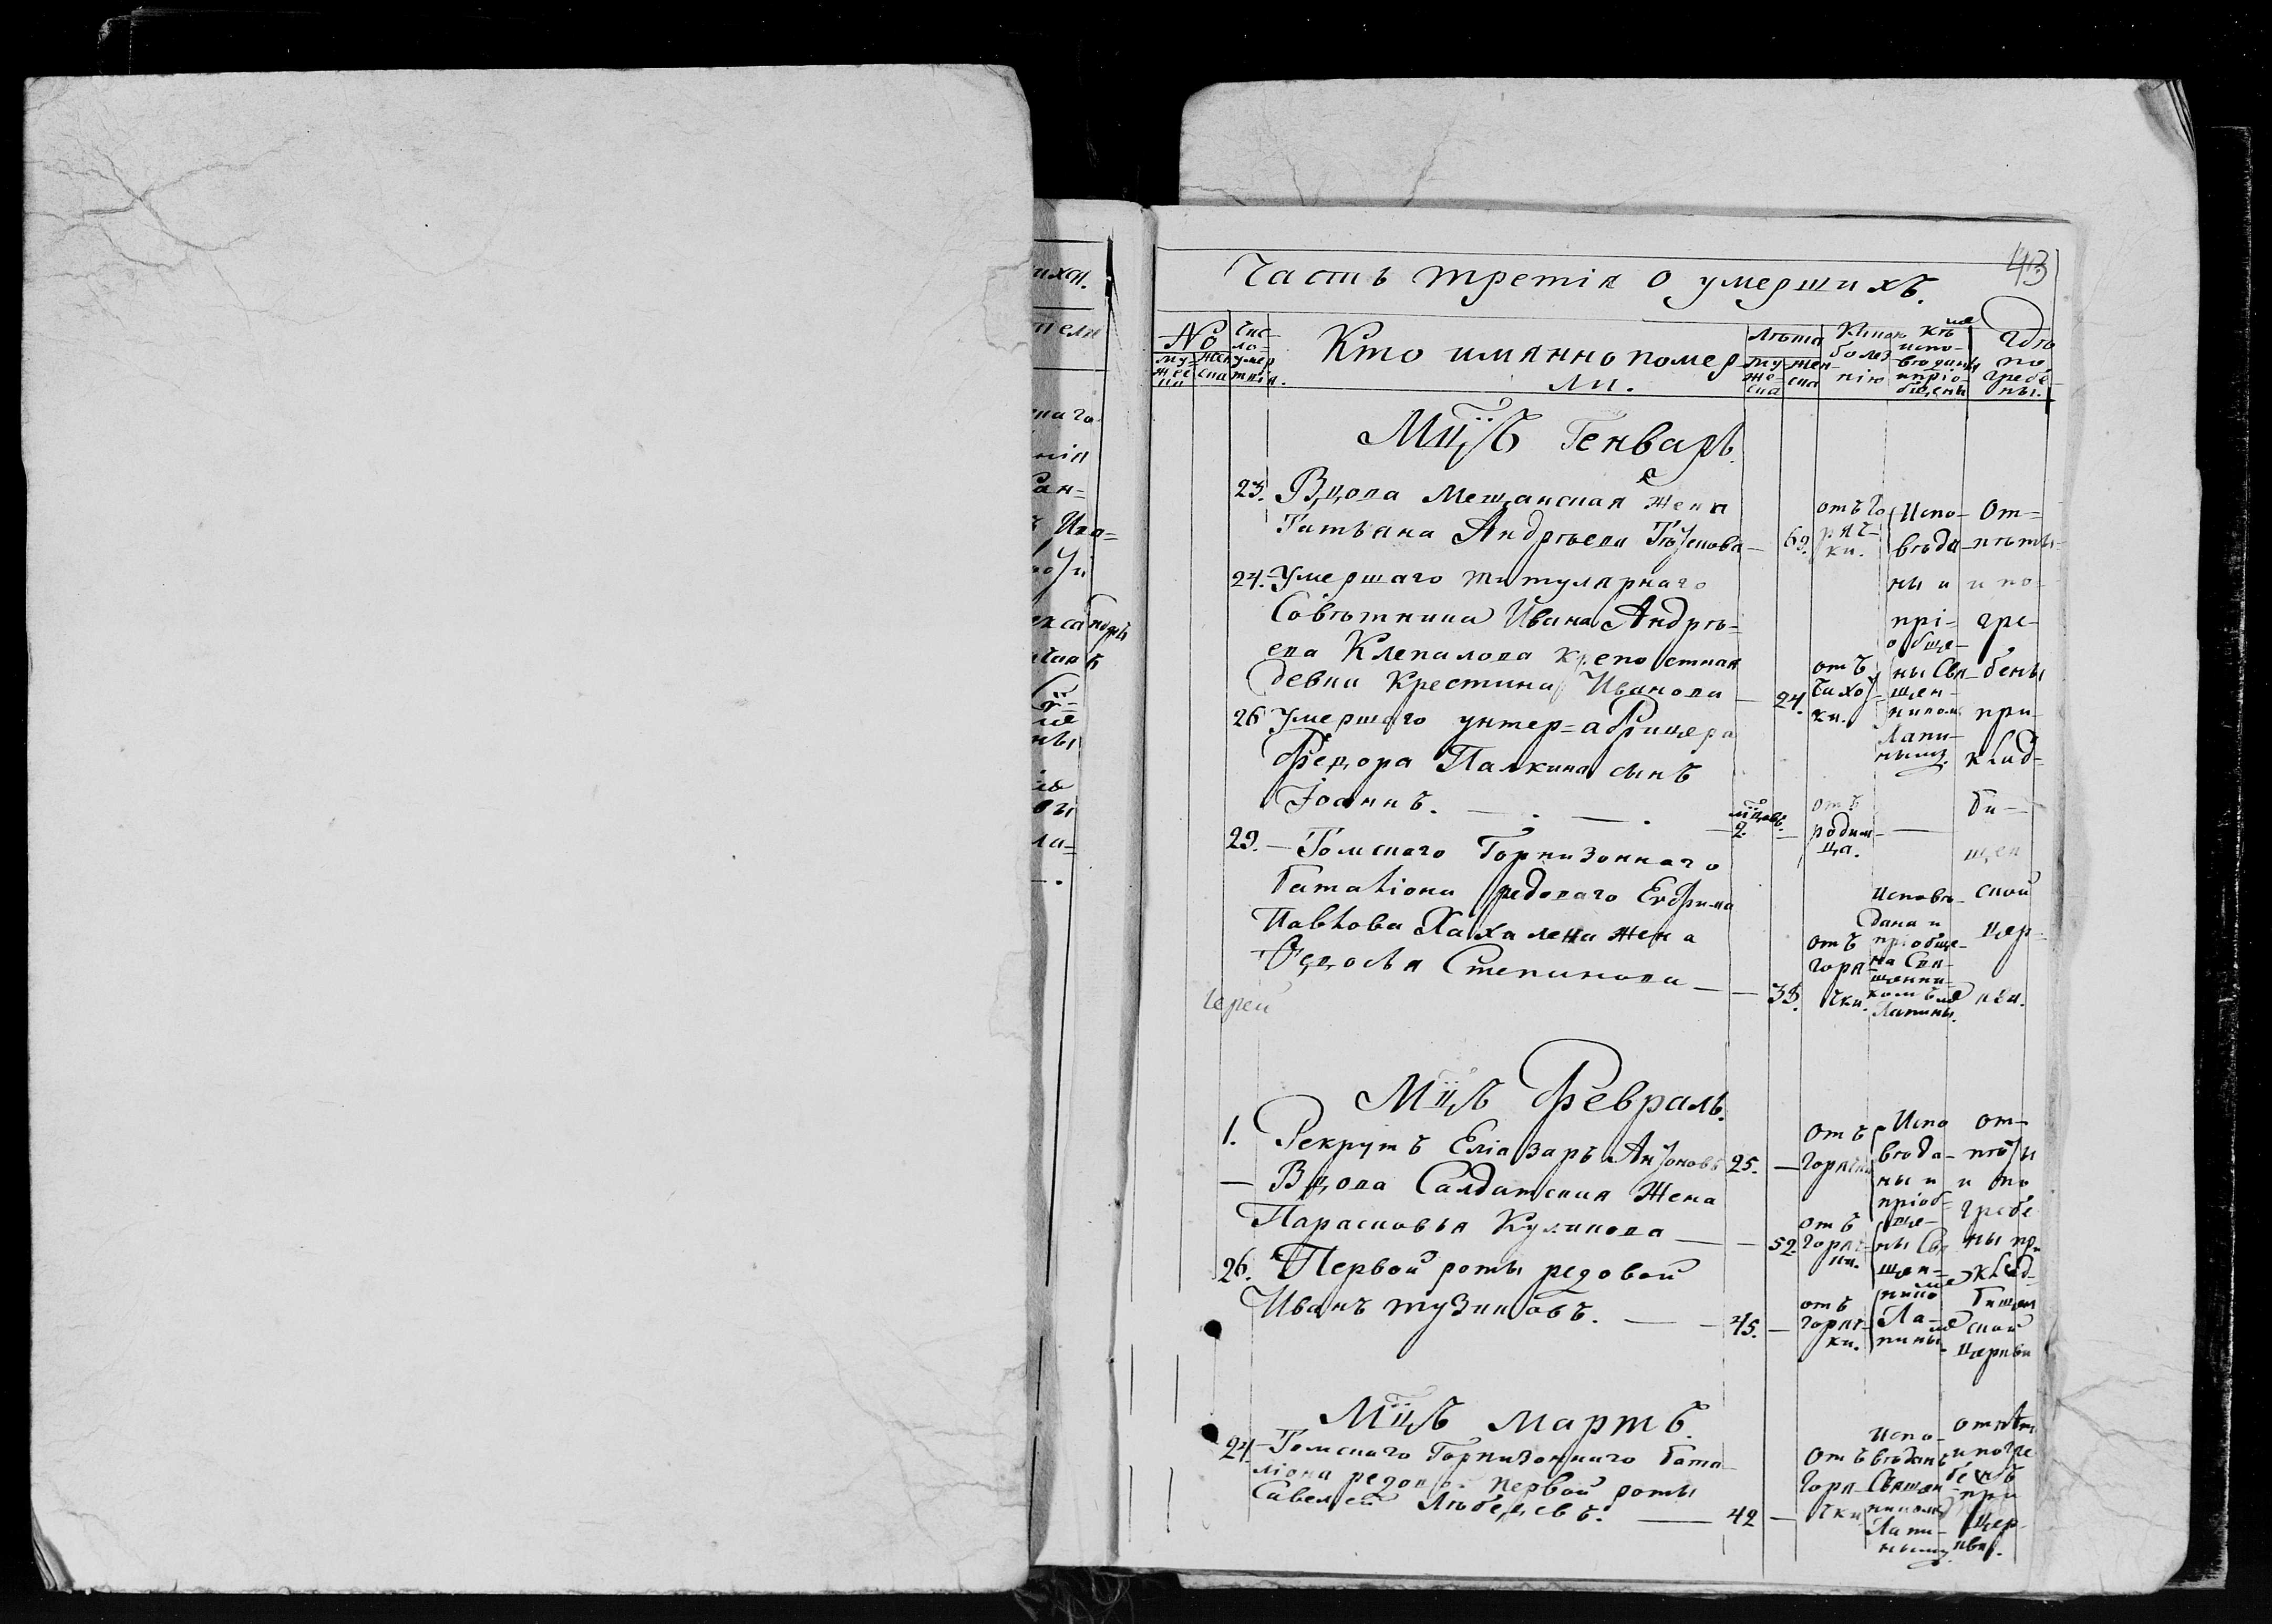 43
Часть третiя о умершихъ.
№
му-
жес
жен
ска
Чис-
ло-
умер
Кто имянно помер-
ли.
Лѣта
му
же-
ска
жен-
ска
болѣз
нiю
Кѣмъ
испо-
вѣданы
и прiо-
бщены
Гдѣ
по-
гребе-
ны.
Мцъ Генварь.
23. Вдова Мещанская жена
Татьяна Андрѣева
69.
отъ Го
ряч-
ки.
Испо-
вѣда-
ны и
прi-
обще-
ны Свя-
щен-
никомъ
Лапи-
нымъ.
От-
пѣты
и по-
гре-
бены
при
клад-
би-
щен
ской
цер-
24. Умершаго титулярнаго
Совѣтника Ивана Андрѣ-
ева Клепалова крепостная
девка Крестина Иванова
24.
отъ
чихот
ки.
26 Умершаго унтер-афицера
Федора Палкина сынъ
Iоаннъ.
мцовъ.
2.
отъ
родим-
ца.
29. Томскаго Горнизоннаго
баталiона редоваго Ефима
Павлова жена
Федосья Степанова
33.
отъ
горя-
чки.
Исповѣ-
дана и
прiобще-
на Свя-
щенни-
комъ
Лапины
Мцъ Февраль.
1. Рекрутъ Елiазаръ Антоновъ 25.
Отъ
горячки
Испо
вѣда-
ны и
прiоб-
ще-
ны Свя
щен-
нико
Ла-
пины
от-
пѣты
и по
гребе
ны при
клад-
бищен
ской
церкви
Вдова Салдатская Жена
Парасковья Куликова
52.
отъ
горяч-
ки.
26. Первой роты редовой
Иванъ Тузиковъ. 45.
отъ
горяч-
ки.
Мцъ Мартъ.
24 Томскаго Горнизоннаго бата-
лiона редовой Первой роты
Савелей 42
Отъ
Горя-
чки
Испо-
вѣданъ
Священ
никомъ
Лапи-
нымъ
отпѣтъ
и погре
бенъ
при
цер-
кви.